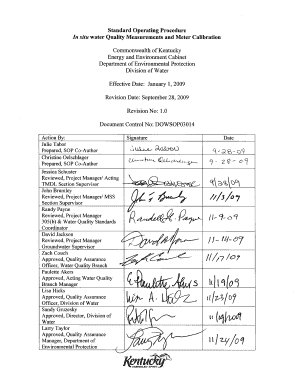 Standard Operating Procedure
In situ water Quality Measurements and Meter Calibration
Commonwealth of Kentucky
Energy and Environment Cabinet
Department of Environmental Protection
Division of Water
Effective Date: January 1, 2009
Revision Date: September 28, 2009
Revision No: 1.0
Document Control No: DOWSOP03014
Action By: Signature Date
Julie Tabor
Prepared, SOP Co-Author 9-28-09
Christine Oelschlager
Prepared, SOP Co-Author 9-28-09
Jessica Schuster
Reviewed, Project Manager/ Acting
TMDL Section Supervisor 9/28/09
John Brumley
Reviewed, Project Manager/ MSS
Section Supervisor 11/3/09
Randy Payne
Reviewed, Project Manager
305(b) & Water Quality Standards
Coordinator Randall G. Payne 11-9-09
David Jackson
Reviewed, Project Manager
Groundwater Supervisor 11-14-09
Zach Couch
Approval, Quality Assurance
Officer, Water Quality Branch 11/17/09
Paulette Akers
Approval, Acting Water Quality
Branch Manager Paulette Akers 11/19/09
Lisa Hicks
Approval, Quality Assurance
Officer, Division of Water 11/23/09
Sandy Gruzesky
Approval, Director, Division of
Water
Larry Taylor
Approval, Quality Assurance
Manager, Department of
Environmental Protection 11/24/09
Kentucky